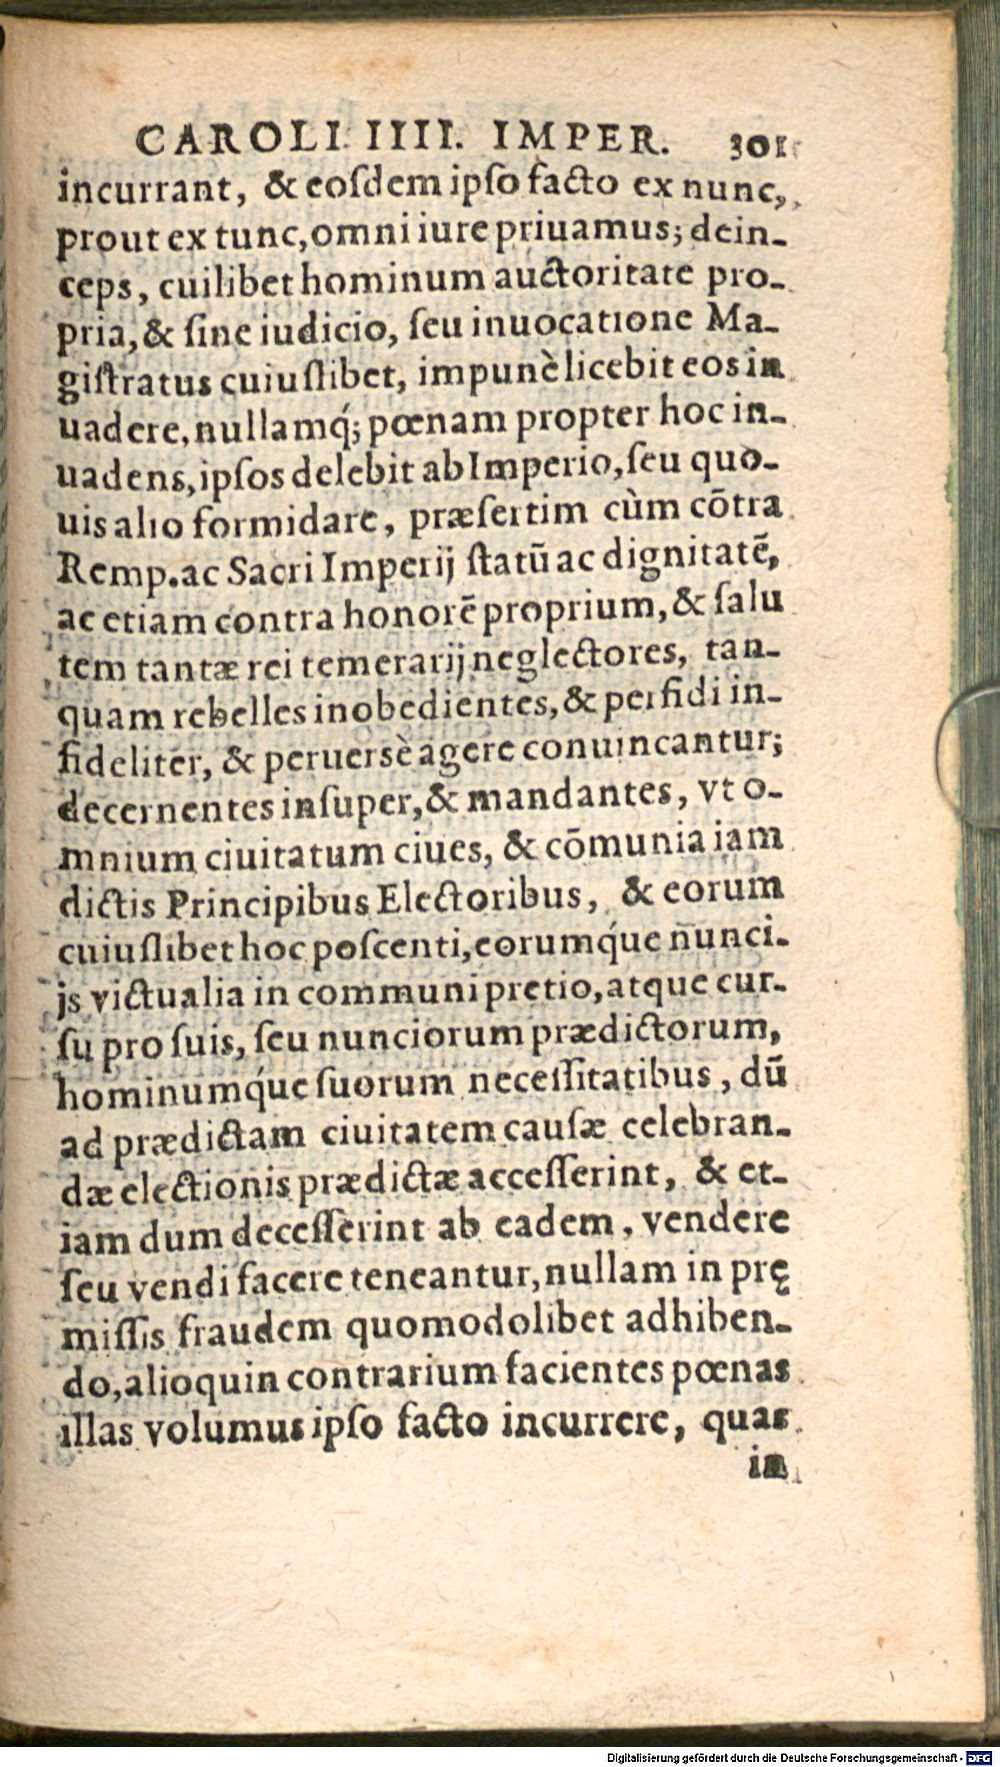 CAROLI IIII. IMPER. 301
incurrant, & eoſdem ipſo facto ex nunc,
prout ex tunc, omni iure priuamus; dein-
ceps, cuilibet hominum auctoritate pro-
pria, & ſine iudicio, ſeu inuocatione Ma-
giſtratus cuiuſlibet, impunè licebit eos in
uadere, nullamq́; pœnam propter hoc in-
uadens, ipſos delebit ab Imperio, ſeu quo-
uis alio formidare, præſertim cùm cõtra
Remp. ac Sacri Imperij ſtatũ ac dignitatẽ,
ac etiam contra honorẽ proprium, & ſalu
tem tantæ rei temerarij neglectores, tan-
quam rebelles inobedientes, & perfidi in-
fideliter, & peruersè agere conuincantur;
decernentes inſuper, & mandantes, vt o-
mnium ciuitatum ciues, & cõmunia iam
dictis Principibus Electoribus, & eorum
cuiuſlibet hoc poſcenti, eorumq́ue nunci-
js victualia in communi pretio, atque cur-
ſu pro ſuis, ſeu nunciorum prædictorum,
hominumq́ue ſuorum neceſſitatibus, dũ
ad prædictam ciuitatem cauſæ celebran-
dæ electionis prædictæ acceſſerint, & et-
iam dum deceſſerint ab eadem, vendere
ſeu vendi facere teneantur, nullam in prę
miſſis fraudem quomodolibet adhiben-
do, alioquin contrarium facientes pœnas
illas volumus ipſo facto incurrere, quas
in
Digitalisierung gefördert durch die Deutsche Forschungsgemeinschaft - DFG